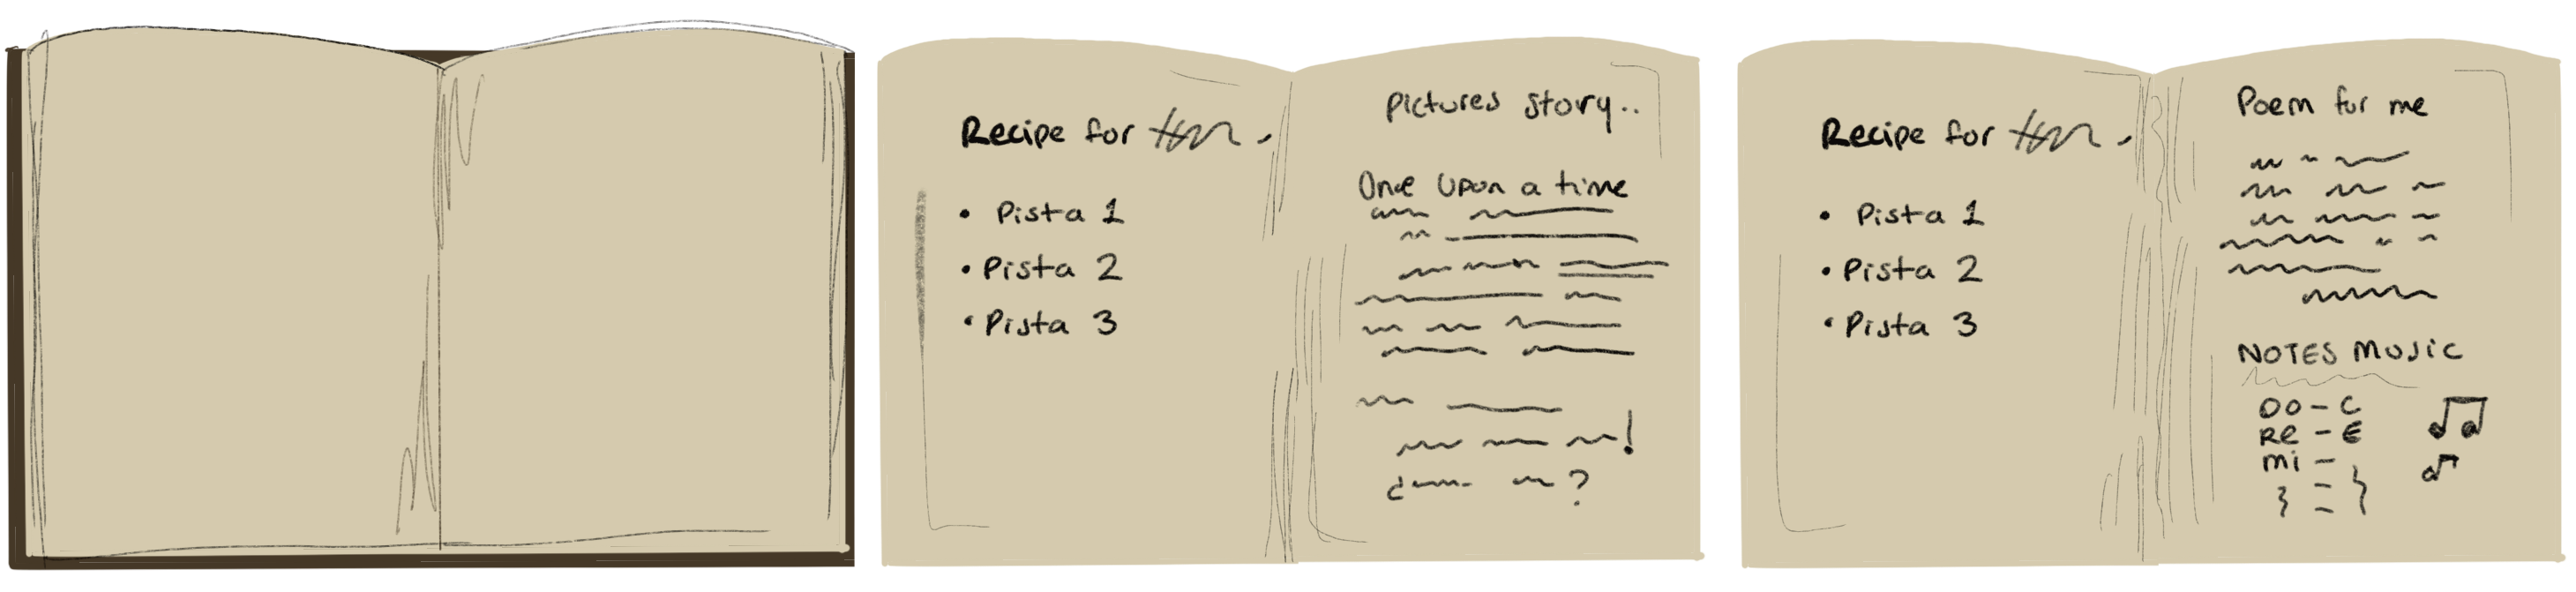 Recipe for
• Pista 1
• Pista 2
• Pista 3
Pictures story..
Once Upon a time
!
¿ ?
Recipe for
• Pista 1
• Pista 2
• Pista 3
Poem for me
NOTES MUSIC
DO - C
Re - E
mi -